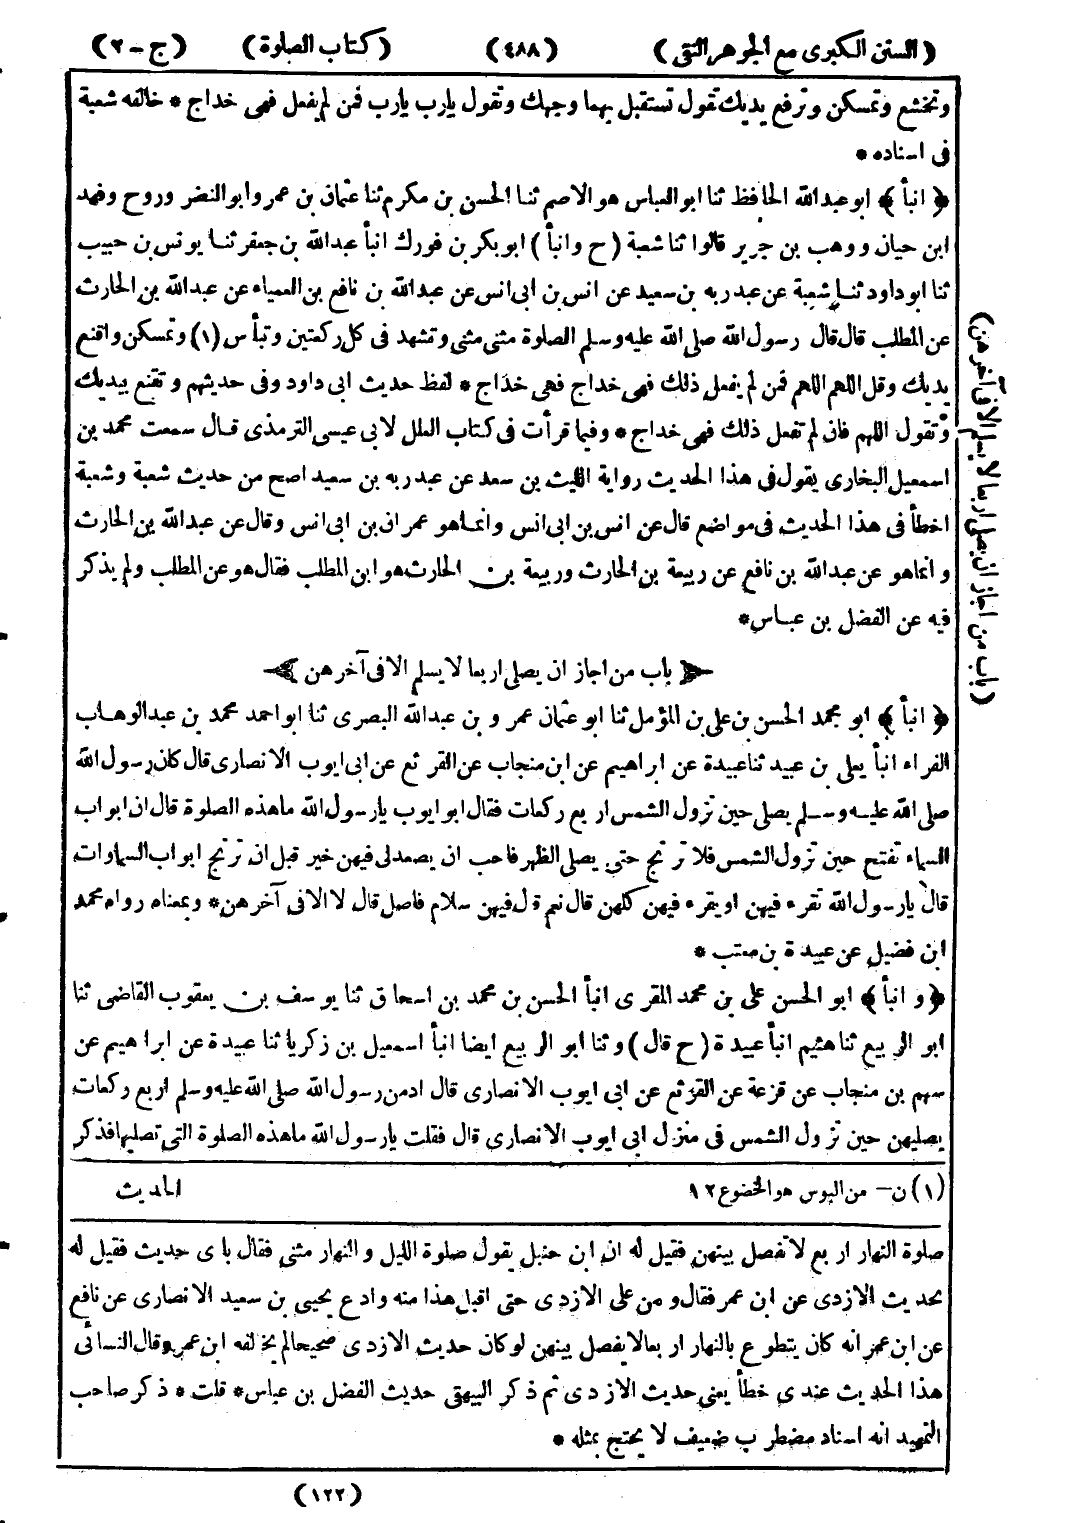 (السنن الكبرى مع الجوهر النقى) (٤٨٨) (كتاب الصلوة) (ج - ٢)
وتخشع وتمسكن وترفع يديك تقول تستقبل بهما وجهك وتقول يارب يارب فمن لم يفعل فهى خداج * خالفه شعبة
فى اسناده *
﴿ انبأ ﴾ ابو عبد الله الحافظ ثنا ابو العباس هو الاصم ثنا الحسن بن مكرم ثنا عثمان بن عمر وابو النضر وروح وفهد
ابن حيان ووهب بن جرير قالوا ثنا شعبة (ح وانبأ) ابو بكر بن فورك انبأ عبد الله بن جعفر ثنا يونس بن حبيب
ثنا ابو داود ثنا شعبة عن عبد ربه بن سعيد عن انس بن ابى انس عن عبد الله بن نافع بن العمياء عن عبد الله بن الحارث
عن المطلب قال قال رسول الله صلى الله عليه وسلم الصلوة مثنى مثنى وتشهد فى كل ركعتين وتبأس (١) وتمسكن واقنع
يديك وقل اللهم اللهم فمن لم يفعل ذلك فهى خداج فهى خداج * لفظ حديث ابى داود وفى حديثهم وتقنع بيديك
وتقول اللهم فان لم تفعل ذلك فهى خداج * وفيما قرأت فى كتاب العلل لابى عيسى الترمذى قال سمعت محمد بن
اسمعيل البخارى يقول فى هذا الحديث رواية الليث بن سعد عن عبد ربه بن سعيد اصح من حديث شعبة وشعبة
اخطأ فى هذا الحديث فى مواضع قال عن انس بن ابى انس وانما هو عمران بن ابى انس وقال عن عبد الله بن الحارث
وانما هو عن عبد الله بن نافع عن ربيعة بن الحارث وربيعة بن الحارث هو ابن المطلب فقال هو عن المطلب ولم يذكر
فيه عن الفضل بن عباس *
باب من اجاز ان يصلى اربعا لا يسلم الا فى آخرهن
﴿ انبأ ﴾ ابو محمد الحسن بن على بن المؤمل ثنا ابو عثمان عمرو بن عبد الله البصرى ثنا ابو احمد محمد بن عبد الوهاب
الفراء انبأ يعلى بن عبيد ثنا عبيدة عن ابراهيم عن ابن منجاب عن القرثع عن ابى ايوب الانصارى قال كان رسول الله
صلى الله عليه وسلم يصلى حين تزول الشمس اربع ركعات فقال ابو ايوب يا رسول الله ما هذه الصلوة قال ان ابواب
السماء تفتح حين تزول الشمس فلا ترتج حتى يصلى الظهر فاحب ان يصعد لى فيهن خير قبل ان ترتج ابواب السماوات
قال يا رسول الله تقرء فيهن او يقرء فيهن كلهن قال نعم قال فيهن سلام فاصل قال لا الا فى آخرهن * وبمعناه رواه محمد
ابن فضيل عن عبيدة بن معتب *
﴿ و انبأ ﴾ ابو الحسن على بن محمد المقرى انبأ الحسن بن محمد بن اسحاق ثنا يوسف بن يعقوب القاضى ثنا
ابو الربيع ثنا هشيم انبأ عبيدة (ح قال) وثنا ابو الربيع ايضا انبأ اسمعيل بن زكريا ثنا عبيدة عن ابراهيم عن
سهم بن منجاب عن قزعة عن القرثع عن ابى ايوب الانصارى قال ادمن رسول الله صلى الله عليه وسلم اربع ركعات
يصليهن حين تزول الشمس فى منزل ابى ايوب الانصارى قال فقلت يا رسول الله ما هذه الصلوة التى تصليها فذكر
(باب من اجاز ان يصلى اربعا لا يسلم الا فى آخرهن)
(١) ن - من البوس هو الخضوع ١٢ الحديث
صلوة النهار اربع لا تفصل بينهن فقيل له ان ابن حنبل يقول صلوة الليل والنهار مثنى فقال باى حديث فقيل له
بحديث الازدى عن ابن عمر فقال ومن على الازدى حتى اقبل هذا منه وادع يحيى بن سعيد الانصارى عن نافع
عن ابن عمر انه كان يتطوع بالنهار اربعا لا يفصل بينهن لو كان حديث الازدى صحيحا لم يخالفه ابن عمر وقال النسائى
هذا الحديث عندى خطأ يعنى حديث الازدى ثم ذكر البيهقى حديث الفضل بن عباس * قلت * ذكر صاحب
التمهيد انه اسناد مضطرب ضعيف لا يحتج بمثله *
(١٢٢)